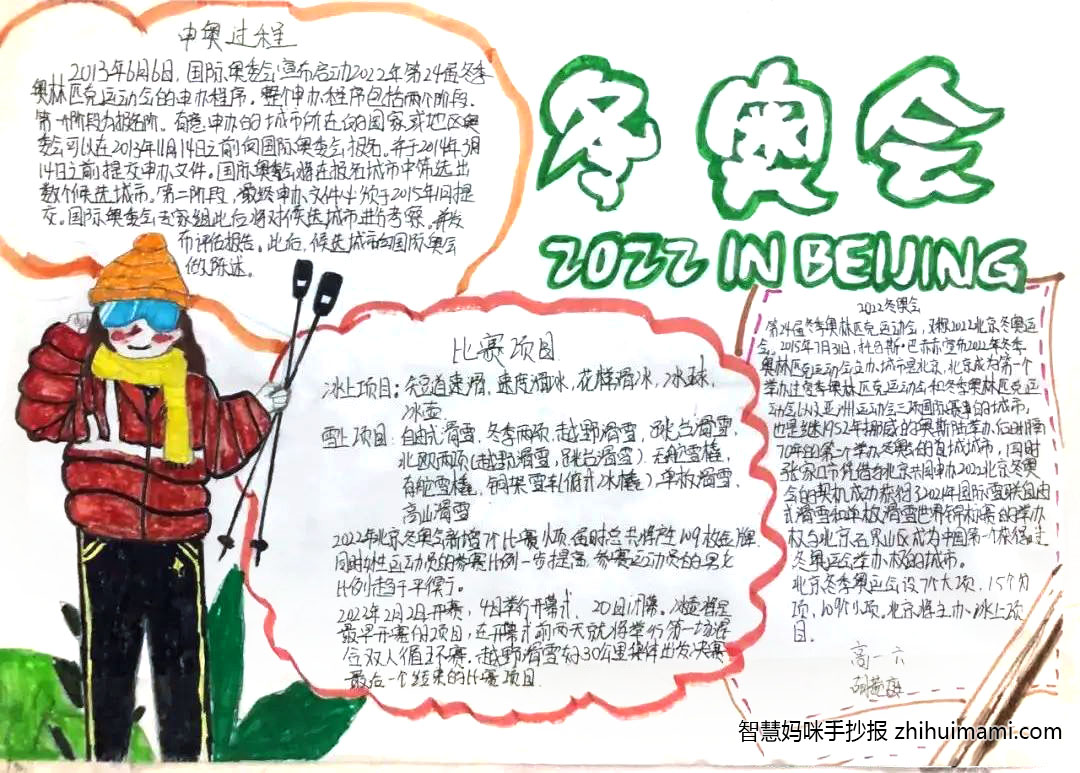 申奥过程
2013年6月6日，国际奥委会宣布启动2022年第24届冬季
奥林匹克运动会的申办程序。整个申办程序包括两个阶段，
第一个阶段为报名阶。有意申办的城市所在的国家或地区奥
委会可以在2013年11月14日之前向国际奥委会报名。并于2014年3月
14日之前提交申办文件。国际奥委会将在报名城市中筛选出
数个候选城市。第二阶段，最终申办文件必须于2015年1月提
交。国际奥委会考察组此后将对候选城市进行考察。并发
布评估报告。此后，候选城市向国际奥会
做陈述。
冬奥会
2022 IN BEIJING
比赛项目
冰上项目：短道速滑，速度滑冰，花样滑冰，冰球，
冰壶
雪上项目：自由式滑雪，冬季两项，越野滑雪，跳台滑雪，
北欧两项（越野滑雪，跳台滑雪）无舵雪橇，
有舵雪橇，钢架雪车（俯式冰橇），单板滑雪，
高山滑雪
2022年北京冬奥会新增7个比赛小项，届时总共将产生109枚金牌.
同时女性运动员的参赛比例一步提高 参赛运动员的男女
比例趋于平衡了。
2022年2月2日开赛，4日举行开幕式，20日闭幕。冰壶将是
最早开赛的项目，在开幕式前两天就将举行第一场混
合双人循环赛。越野滑雪女子30公里集体出发决赛
最后一个结束的比赛项目.
2022冬奥会
第24届冬季奥林匹克运动会，又称2022北京冬奥运
会。2015年7月31日，托马斯·巴赫宣布2022年冬季
奥林匹克运动会主办城市是北京，北京成为第一个
举办过夏季奥林匹克运动会和冬季奥林匹克运
动会以及亚洲运动会三项国际赛事的城市，
也是继1952年挪威的奥斯陆举办后时隔
70年的第二个举办冬奥会的首城城市，同时
张家口市凭借与北京共同申办2022北京冬奥
会的契机成功获得了2021年国际雪联自由
式滑雪和单板滑雪世界锦标赛的举办
权与北京石景山区成为中国第一个获得过
冬奥运会举办权的城市。
北京冬季奥运会设7个大项，15个分
项，109个小项。北京将主办冰上项
目.
高一六
智慧妈咪手抄报 zhihuimami.com